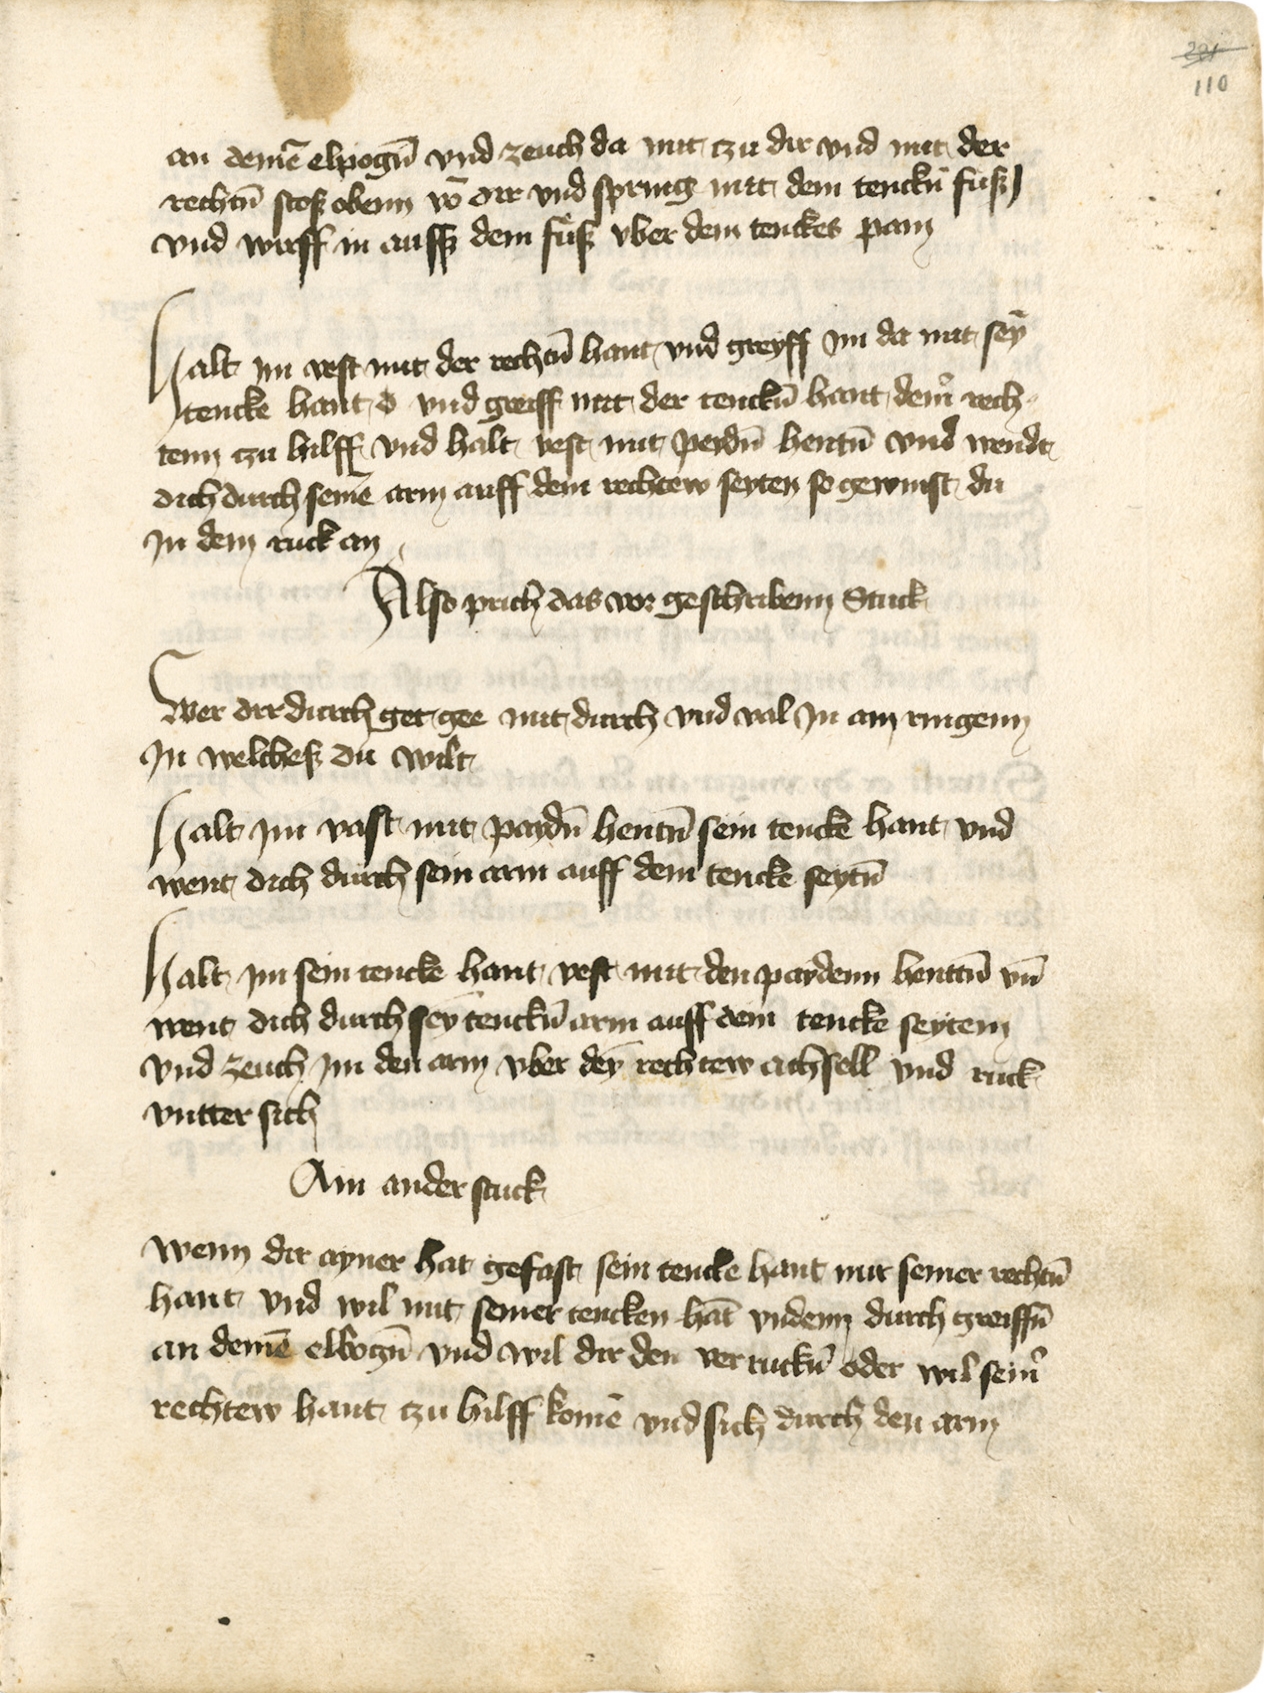 221
110
an deinē elpogn̄ vnd zeuch da mit czu dir vnd mit der
rechtn̄ stoß obenn vō dir vnd spring mit dem tenckn̄ fuß
vnd wirff in auss dem fuß vber dem tenckes pain
Halt im vest mit der rechtn̄ hant vnd greyff im da mit seȳ
tencke hant vnd greiff mit der tenckn̄ hant dein̄ rech
tenn czu hilff vnd halt vest mit peydn̄ hentn̄ vnd wendt
dich durch seinē arm auff dem rechtew seyten so gewinst du
In dem ruck an
Also prich das vor geschribenn Stuck
Wer dir durch get gee mit durch vnd val In ain ringenn
In welcheß du wilt
Halt im vast mit paydn̄ hentn̄ sein tencke hant vnd
went dich durch sein arm auff dem tencke seytn̄
Halt im sein tencke hant vest mit den paydenn henttn̄ vn̄
went dich durch seȳ tenckn̄ arm auff dem tencke seytenn
vnd zeuch im den arm vber deȳ rechtew achsell vnd ruck
vntter sich
Ain ander stuck
Wenn dir ayner hat gefast sein tencke hant mit seiner rechtn̄
hant vnd wil mit seiner tencken hāt vndenn durch greiffn̄
an deinē elbogn̄ vnd wil dir den verruckn̄ oder wil sein̄
rechtew hant czu hilff komē vnd sich durch den arm